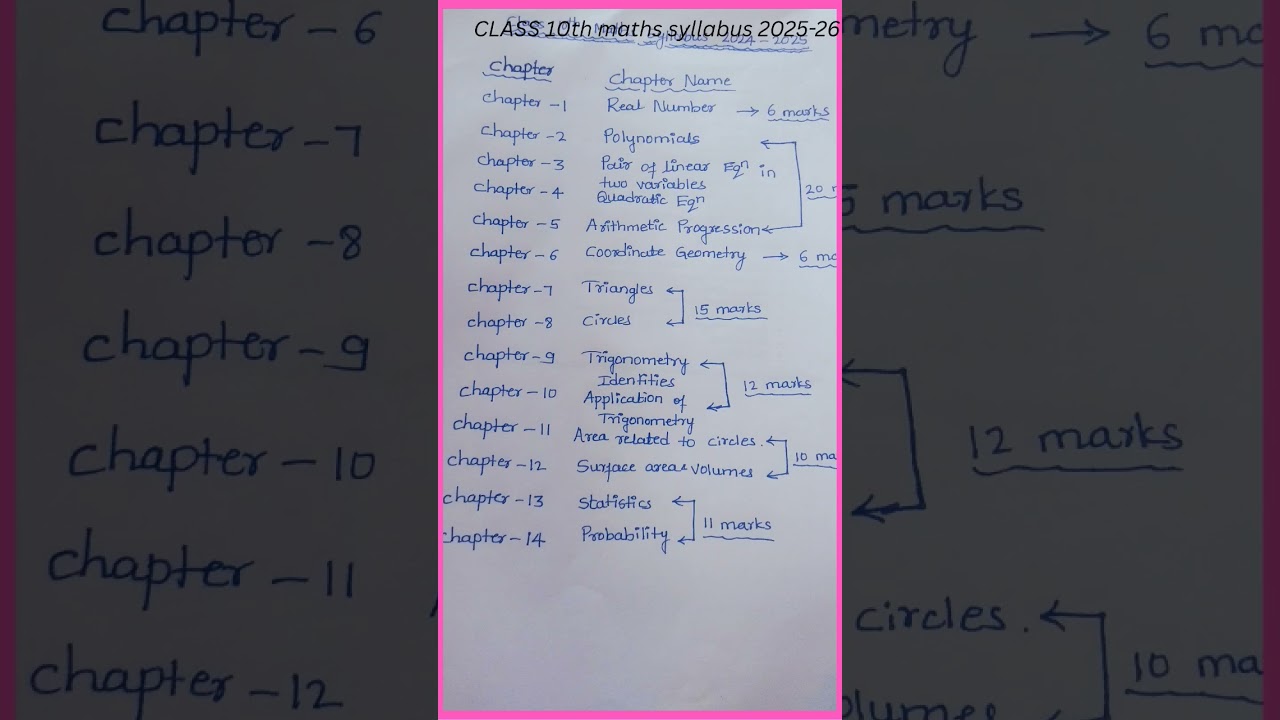 CLASS 10th maths syllabus 2025-26
2024 - 2025
Chapter Chapter Name
chapter -1 Real Number → 6 marks
chapter -2 Polynomials
chapter -3 Pair of linear Eqn in
two variables
20
chapter -4 Quadratic Eqn
chapter -5 Arithmetic Progression
chapter -6 Coordinate Geometry → 6 ma
chapter -7 Triangles
15 marks
chapter -8 Circles
chapter -9 Trigonometry
Identities
12 marks
chapter -10 Application of
Trigonometry
chapter -11 Area related to circles.
10 ma
chapter -12 Surface area & volumes
chapter -13 Statistics
11 marks
chapter -14 Probability
chapter - 6
chapter -7
chapter -8
chapter -9
chapter -10
chapter -11
chapter -12
metry → 6 ma
5 marks
12 marks
circles.
10 ma
olumes